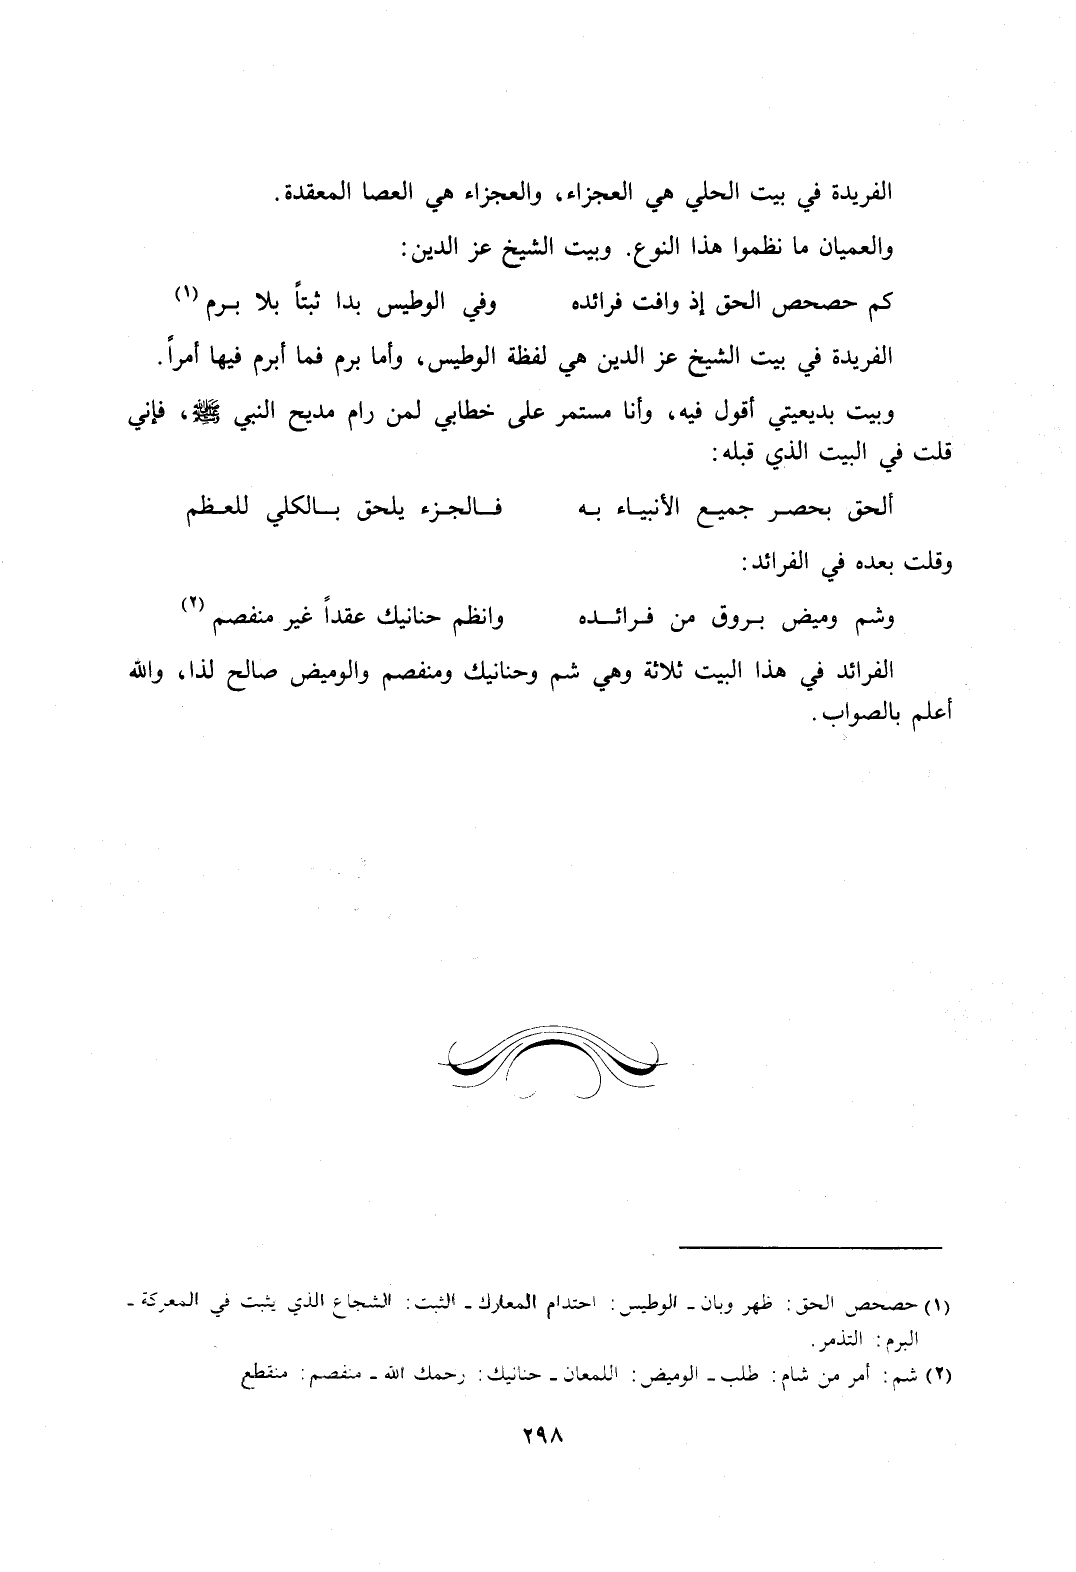 الفريدة في بيت الحلي هي العجزاء، والعجزاء هي العصا المعقدة.
والعميان ما نظموا هذا النوع. وبيت الشيخ عز الدين:
كم حصحص الحق إذ وافت فرائده وفي الوطيس بدا ثبتاً بلا بـرم (١)
الفريدة في بيت الشيخ عز الدين هي لفظة الوطيس، وأما برم فما أبرم فيها أمراً.
وبيت بديعيتي أقول فيه، وأنا مستمر على خطابي لمن رام مديح النبي ﷺ، فإني
قلت في البيت الذي قبله:
ألحق بحصـر جميـع الأنبيـاء بـه فـالجـزء يلحق بـالكلي للعـظم
وقلت بعده في الفرائد:
وشم وميض بـروق من فـرائـده وانظم حنانيك عقداً غير منفصم (٢)
الفرائد في هذا البيت ثلاثة وهي شم وحنانيك ومنفصم والوميض صالح لذا، والله
أعلم بالصواب.
(١) حصحص الحق: ظهر وبان ـ الوطيس: احتدام المعارك ـ الثبت: الشجاع الذي يثبت في المعركة ـ
البرم: التذمر.
(٢) شم: أمر من شام: طلب ـ الوميض: اللمعان ـ حنانيك: رحمك الله ـ منفصم: منقطع
٢٩٨